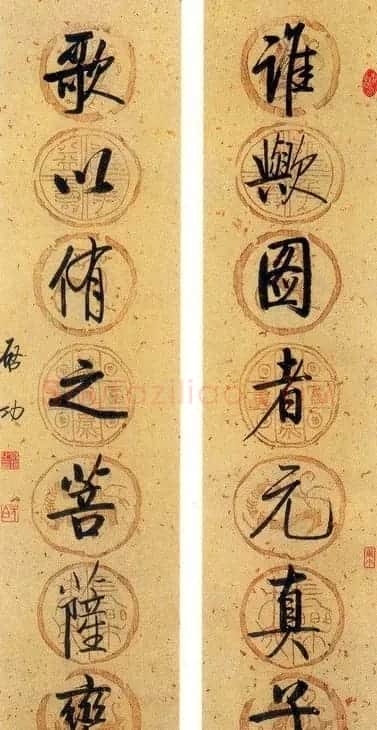 誰歟圖者元真子
歌以侑之菩薩蠻
啓功